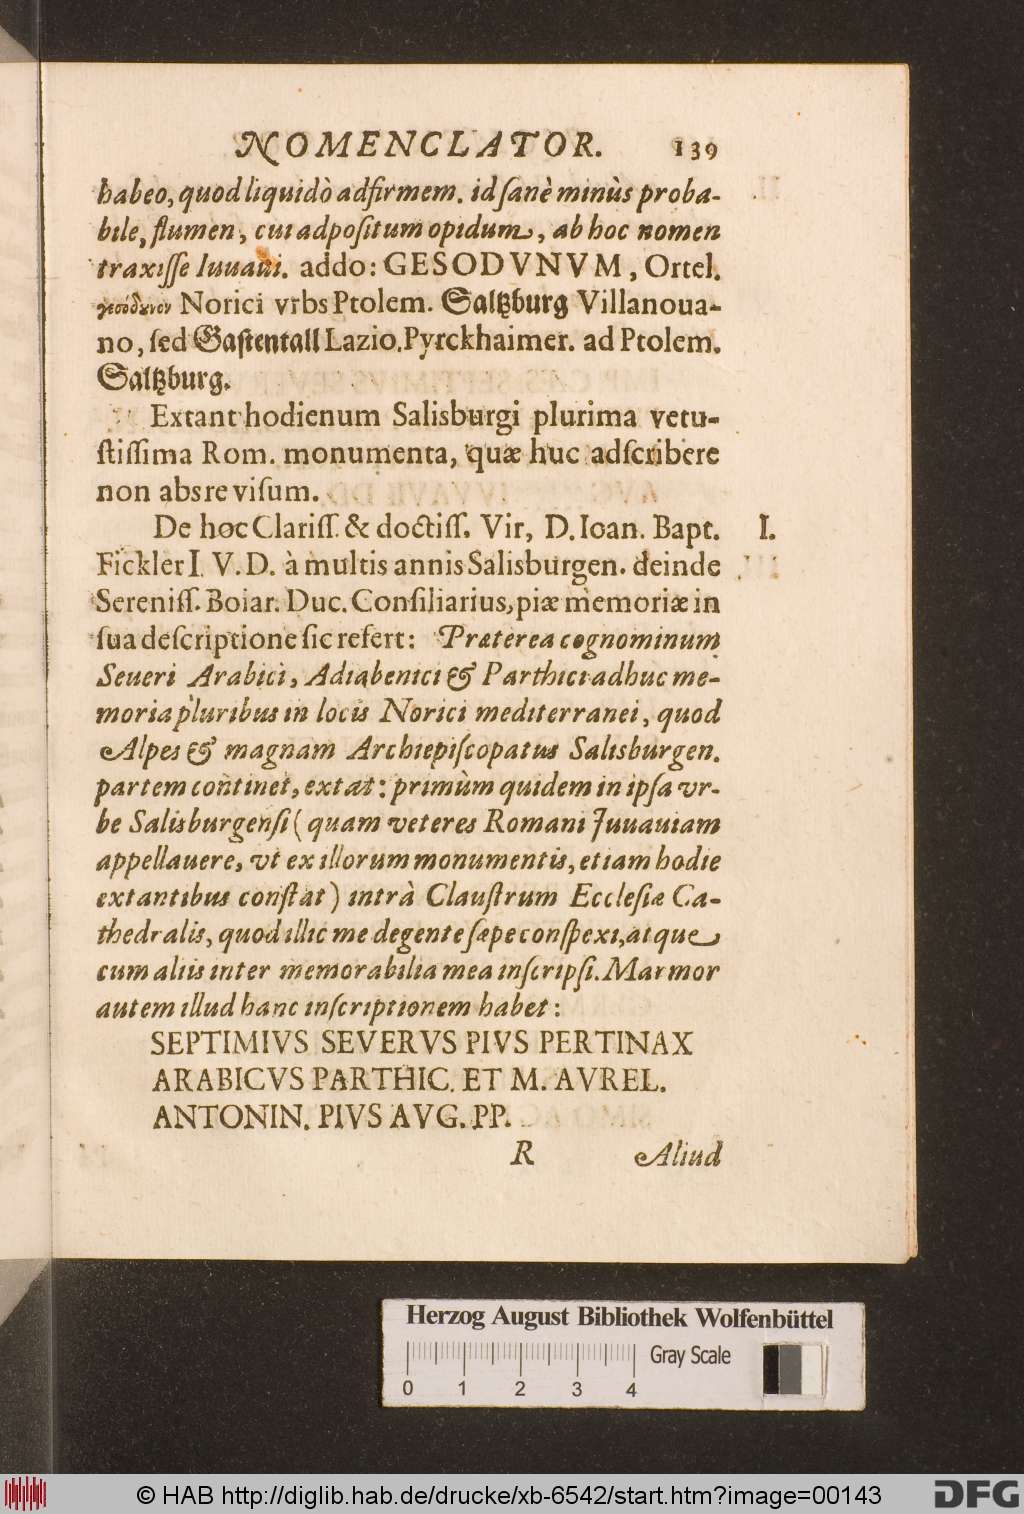 NOMENCLATOR. 139
habeo, quod liquidò adfirmem. id ſanè minùs proba-
bile, flumen, cui adpoſitum opidum, ab hoc nomen
traxiſſe Iuuaui. addo: GESODVNVM, Ortel.
γεσόδουνον Norici vrbs Ptolem. Saltzburg Villanoua-
no, ſed Gaſtentall Lazio. Pyrckhaimer. ad Ptolem.
Saltzburg.
Extant hodienum Salisburgi plurima vetu-
ſtiſſima Rom. monumenta, quæ huc adſcribere
non abs re viſum.
De hoc Clariſſ. & doctiſſ. Vir, D. Ioan. Bapt. I.
Fickler I. V. D. à multis annis Salisburgen. deinde
Sereniſſ. Boiar. Duc. Conſiliarius, piæ memoriæ in
ſua deſcriptione ſic refert: Præterea cognominum
Seueri Arabici, Adiabenici & Parthici adhuc me-
moria pluribus in locis Norici mediterranei, quod
Alpes & magnam Archiepiſcopatus Salisburgen.
partem continet, extat: primùm quidem in ipſa vr-
be Salisburgenſi (quam veteres Romani Juuauiam
appellauere, vt ex illorum monumentis, etiam hodie
extantibus conſtat) intrà Clauſtrum Eccleſiæ Ca-
thedralis, quod illic me degente ſæpe conſpexi, atque
cum aliis inter memorabilia mea inſcripſi. Marmor
autem illud hanc inſcriptionem habet:
SEPTIMIVS SEVERVS PIVS PERTINAX
ARABICVS PARTHIC. ET M. AVREL.
ANTONIN. PIVS AVG. PP.
R Aliud
Herzog August Bibliothek Wolfenbüttel
Gray Scale
0 1 2 3 4
© HAB http://diglib.hab.de/drucke/xb-6542/start.htm?image=00143
DFG